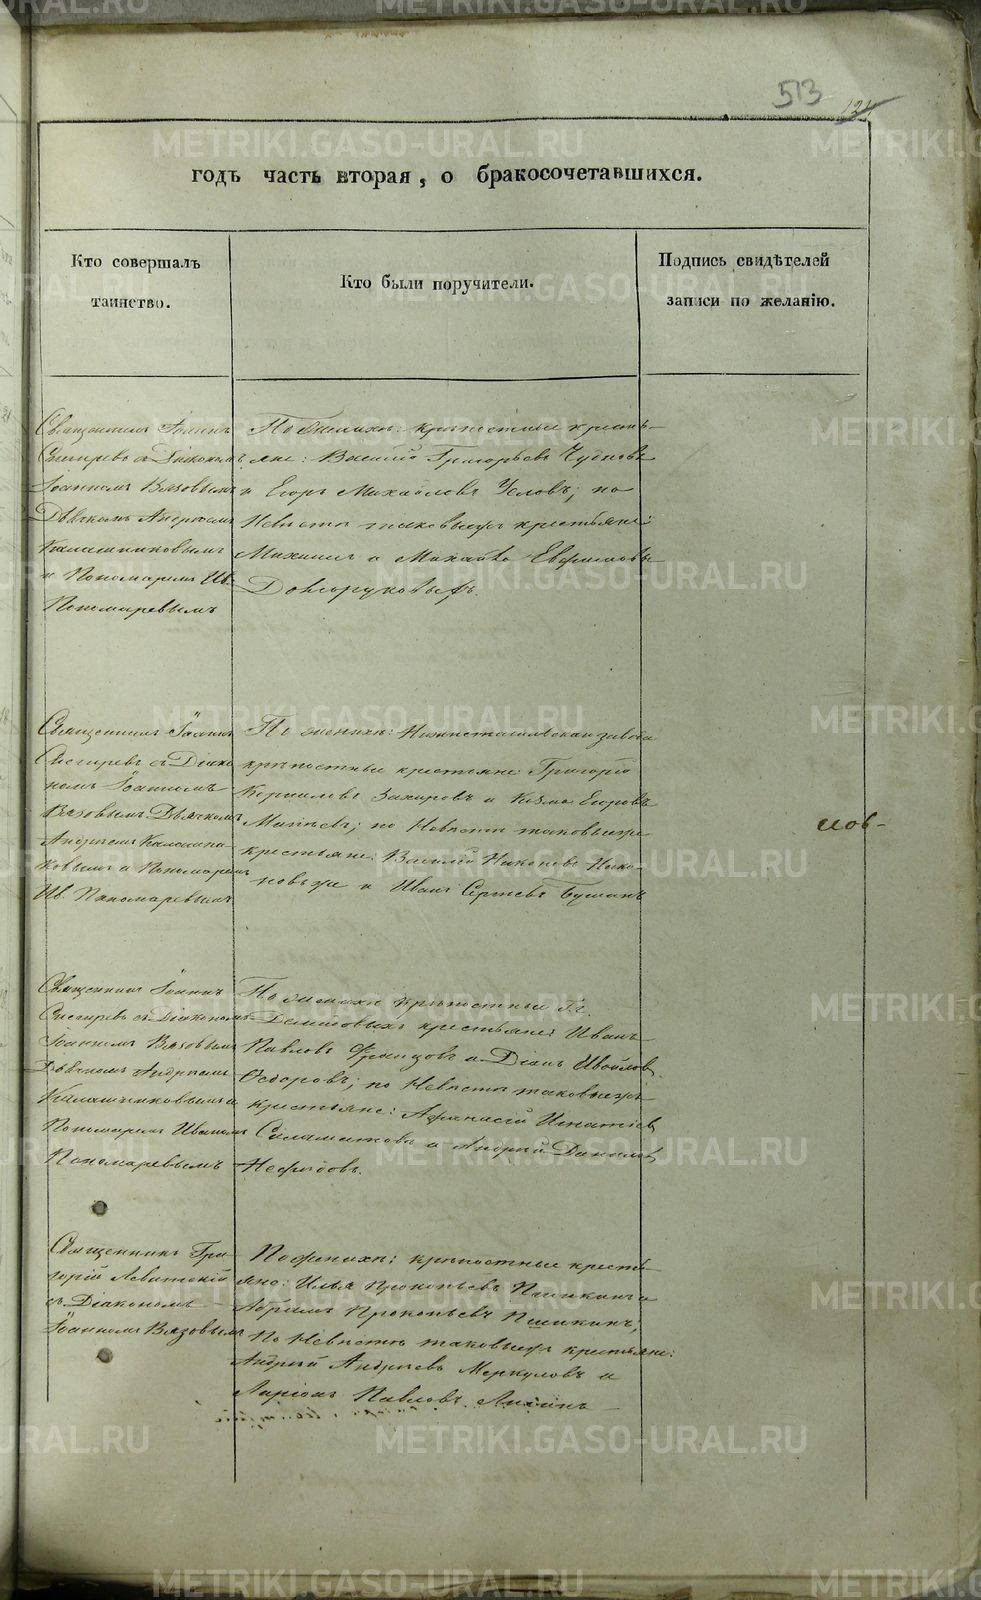 513
121
годъ часть вторая, о бракосочетавшихся.
Кто совершалъ
таинство.
Кто были поручители.
Подпись свидѣтелей
записи по желанію.
Священникъ Іоаннъ
Снегиревъ съ Діакономъ
Іоанномъ Вязовымъ
Дьячкомъ Андреемъ
Калашниковымъ
и Пономаремъ Ив.
Пономаревымъ
По Женихѣ: крѣпостные кресть-
яне: Василій Григорьевъ Чудновъ
и Егоръ Михайловъ Условъ; по
Невѣстѣ таковыеже крестьяне:
Михаилъ и Михайло Евфимовы
Долгоруковы.
Священникъ Іоаннъ
Снегиревъ съ Діако
номъ Іоанномъ
Вязовымъ Дьячкомъ
Андреемъ Калашни-
ковымъ и Пономаремъ
Ив. Пономаревымъ
По женихѣ: Нижнетагильскаго завода
крѣпостные крестьяне: Григорій
Корниловъ Захаровъ и Козма Егоровъ
по Невѣстѣ таковыеже
крестьяне: Василій
и Иванъ Сергѣевъ
иов-
Священникъ Іоаннъ
Снегиревъ съ Діакономъ
Іоанномъ Вязовымъ
Дьячкомъ Андреемъ
Калашниковымъ и
Пономаремъ Иваномъ
Пономаревымъ
По женихѣ крѣпостные Гг.
Демидовыхъ крестьяне: Иванъ
Павловъ и
Ѳедоровъ; по Невѣстѣ таковыеже
крестьяне: Афанасій Игнатіев
Саламатовъ и Андрей Данилов
Нефидовъ.
Священникъ Гри
горій Леватовскій
съ Діакономъ
Іоанномъ Вязовымъ
По женихѣ: крѣпостные кресть-
яне: Илья Прокопьевъ Пшикинъ и
Абрамъ Прокопьевъ Пшикинъ;
По Невѣстѣ таковыеже крестьяне:
Андрей Андреевъ Меркуловъ и
Ларіонъ Павловъ
METRIKI.GASO-URAL.RU